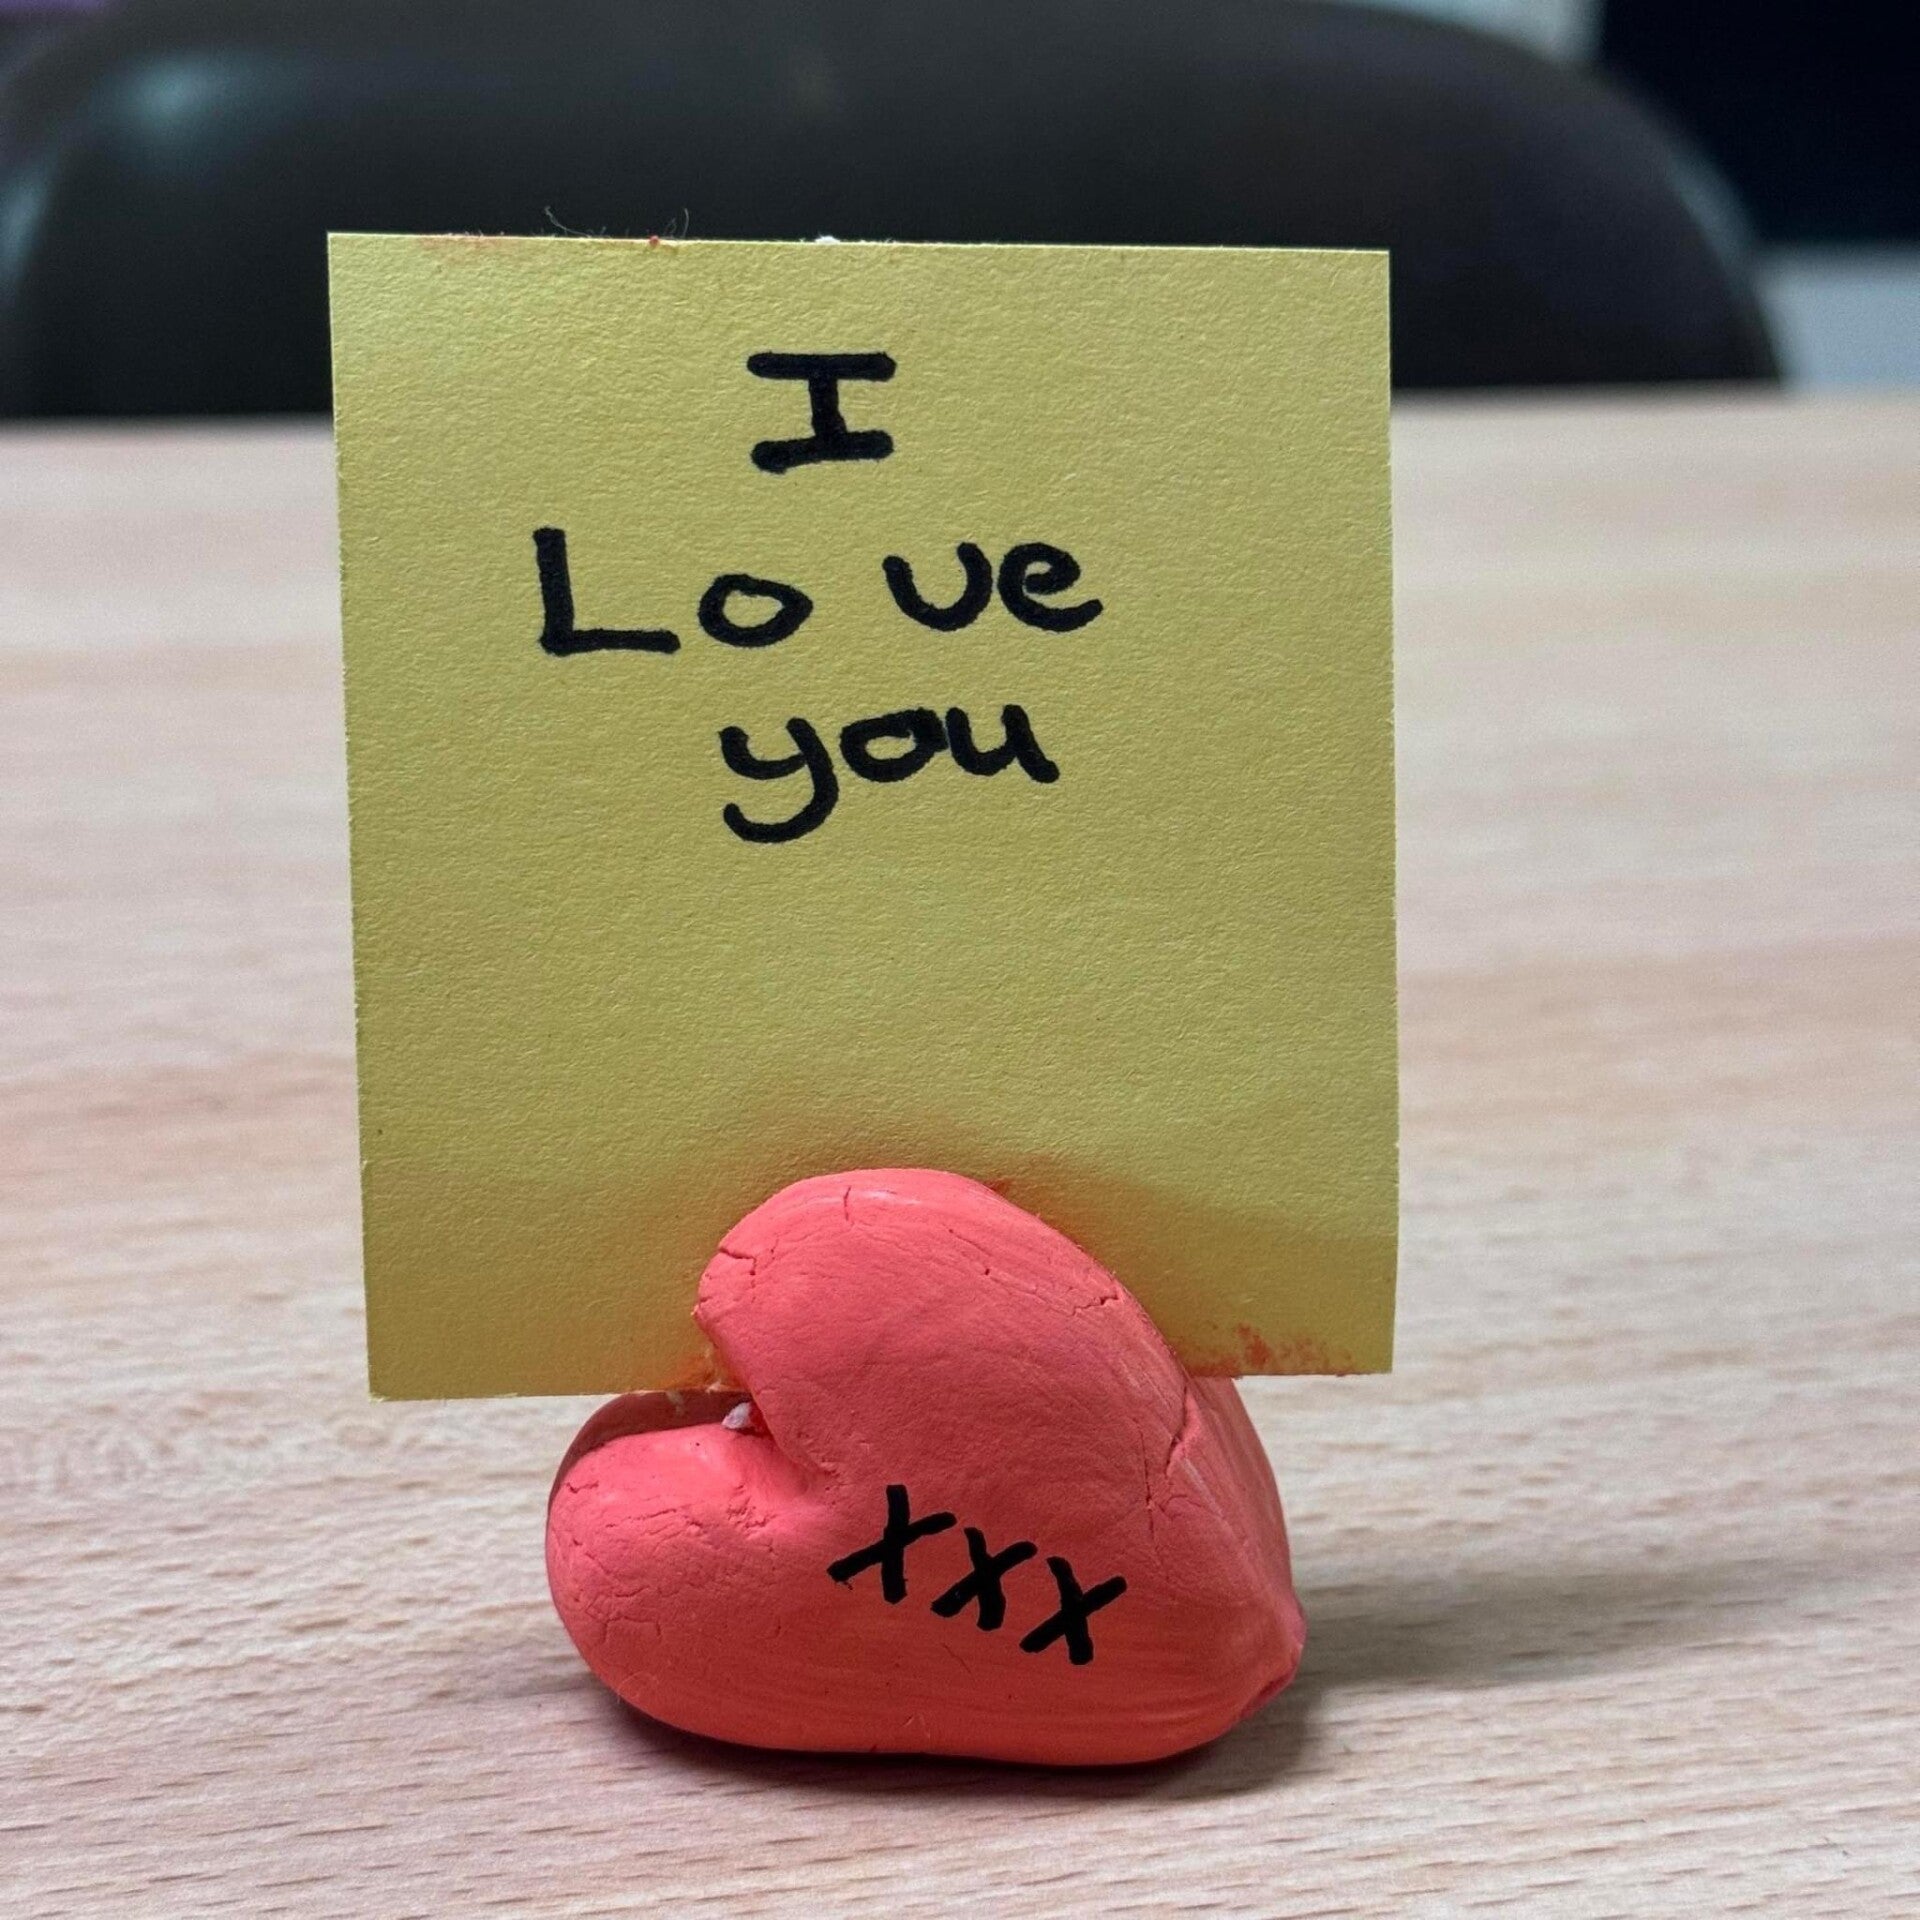 I
Love
you
xxx